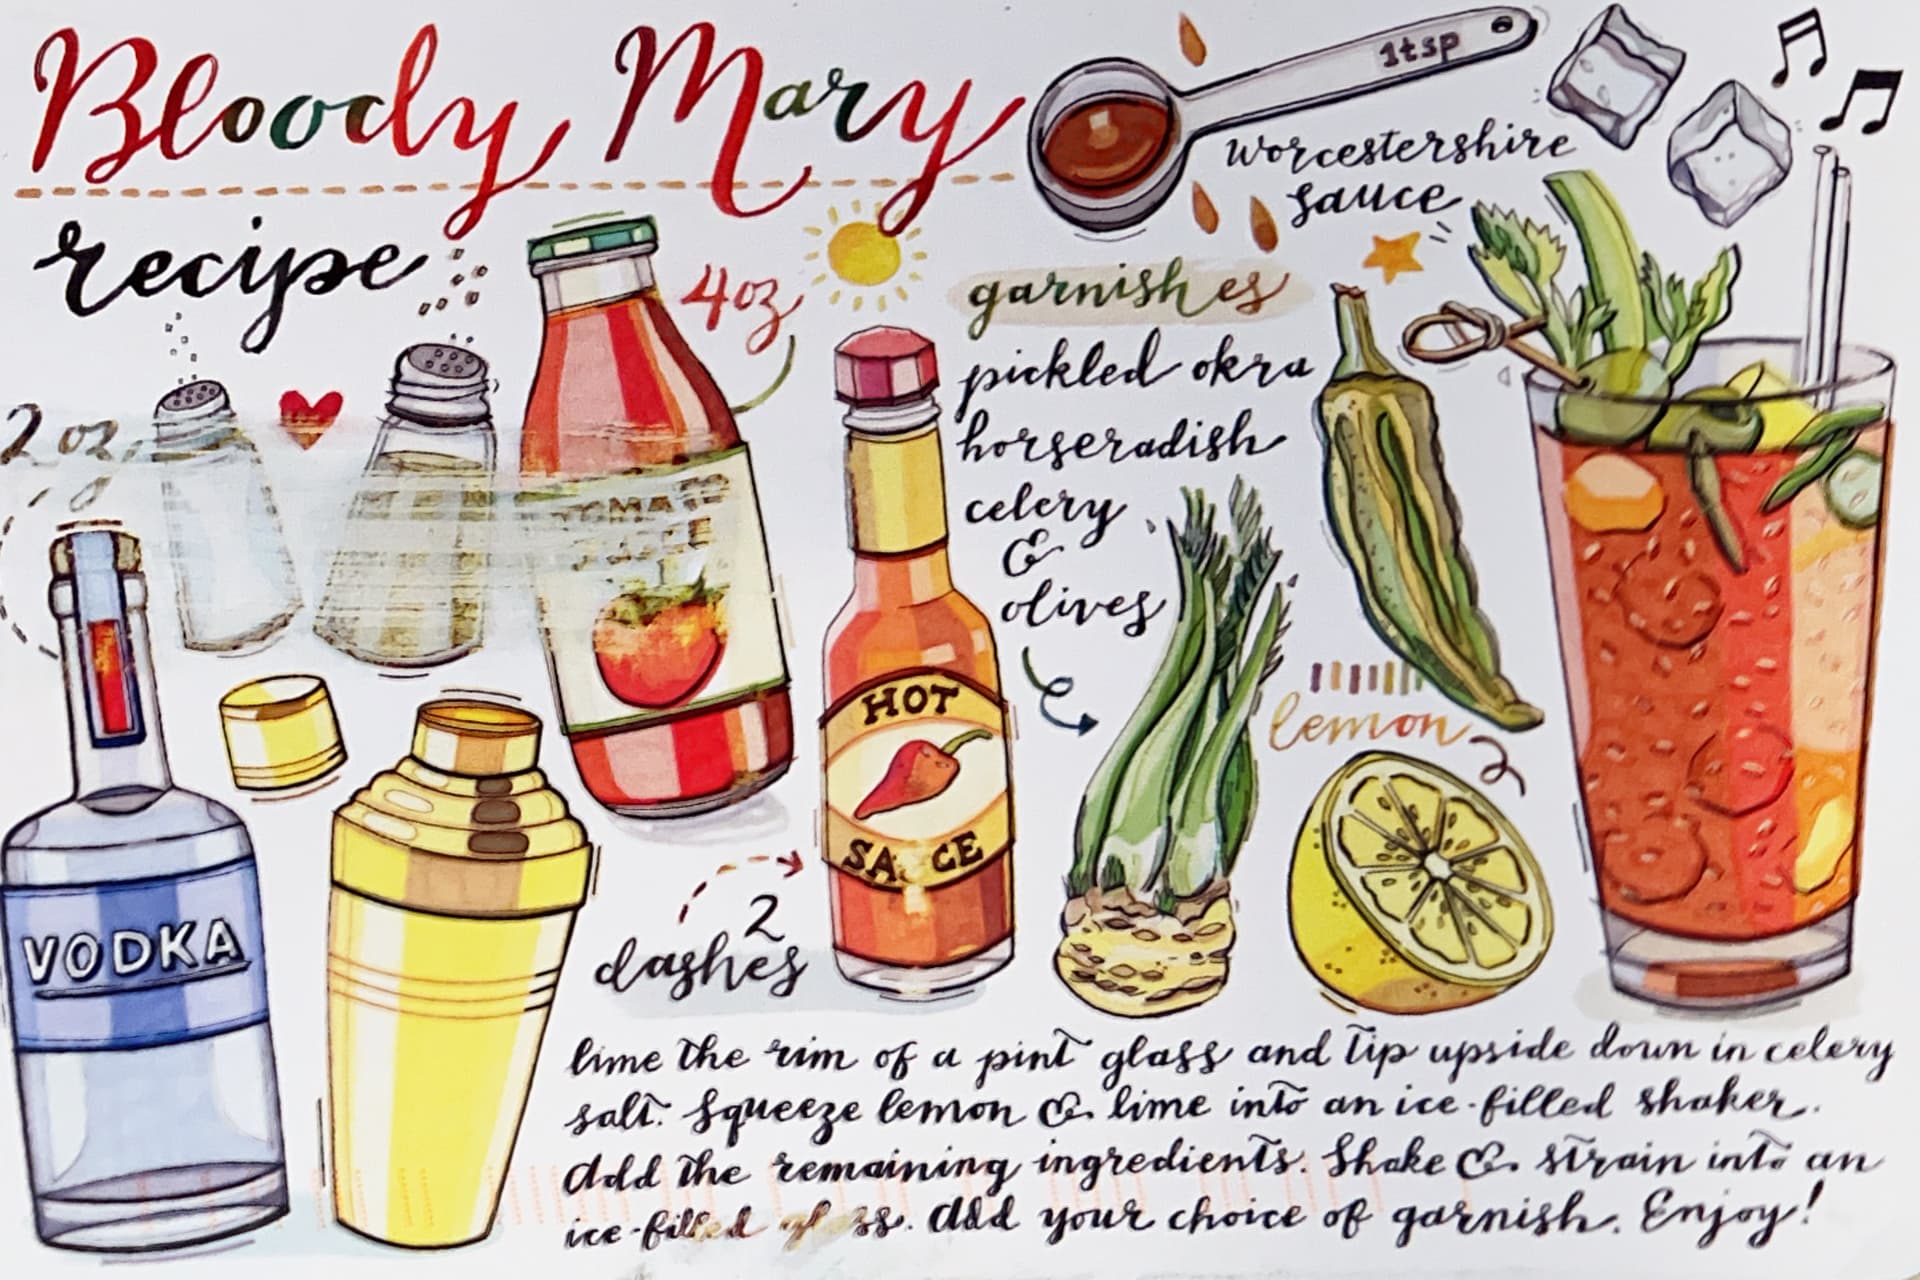 Bloody Mary
recipe
1tsp
worcestershire
sauce
4oz
2 oz
garnishes
pickled okra
horseradish
celery
&
olives
TOMATO
HOT
SA CE
lemon
VODKA
2
dashes
lime the rim of a pint glass and tip upside down in celery
salt. Squeeze lemon & lime into an ice-filled shaker.
Add the remaining ingredients. Shake & strain into an
ice-filled glass. Add your choice of garnish. Enjoy!